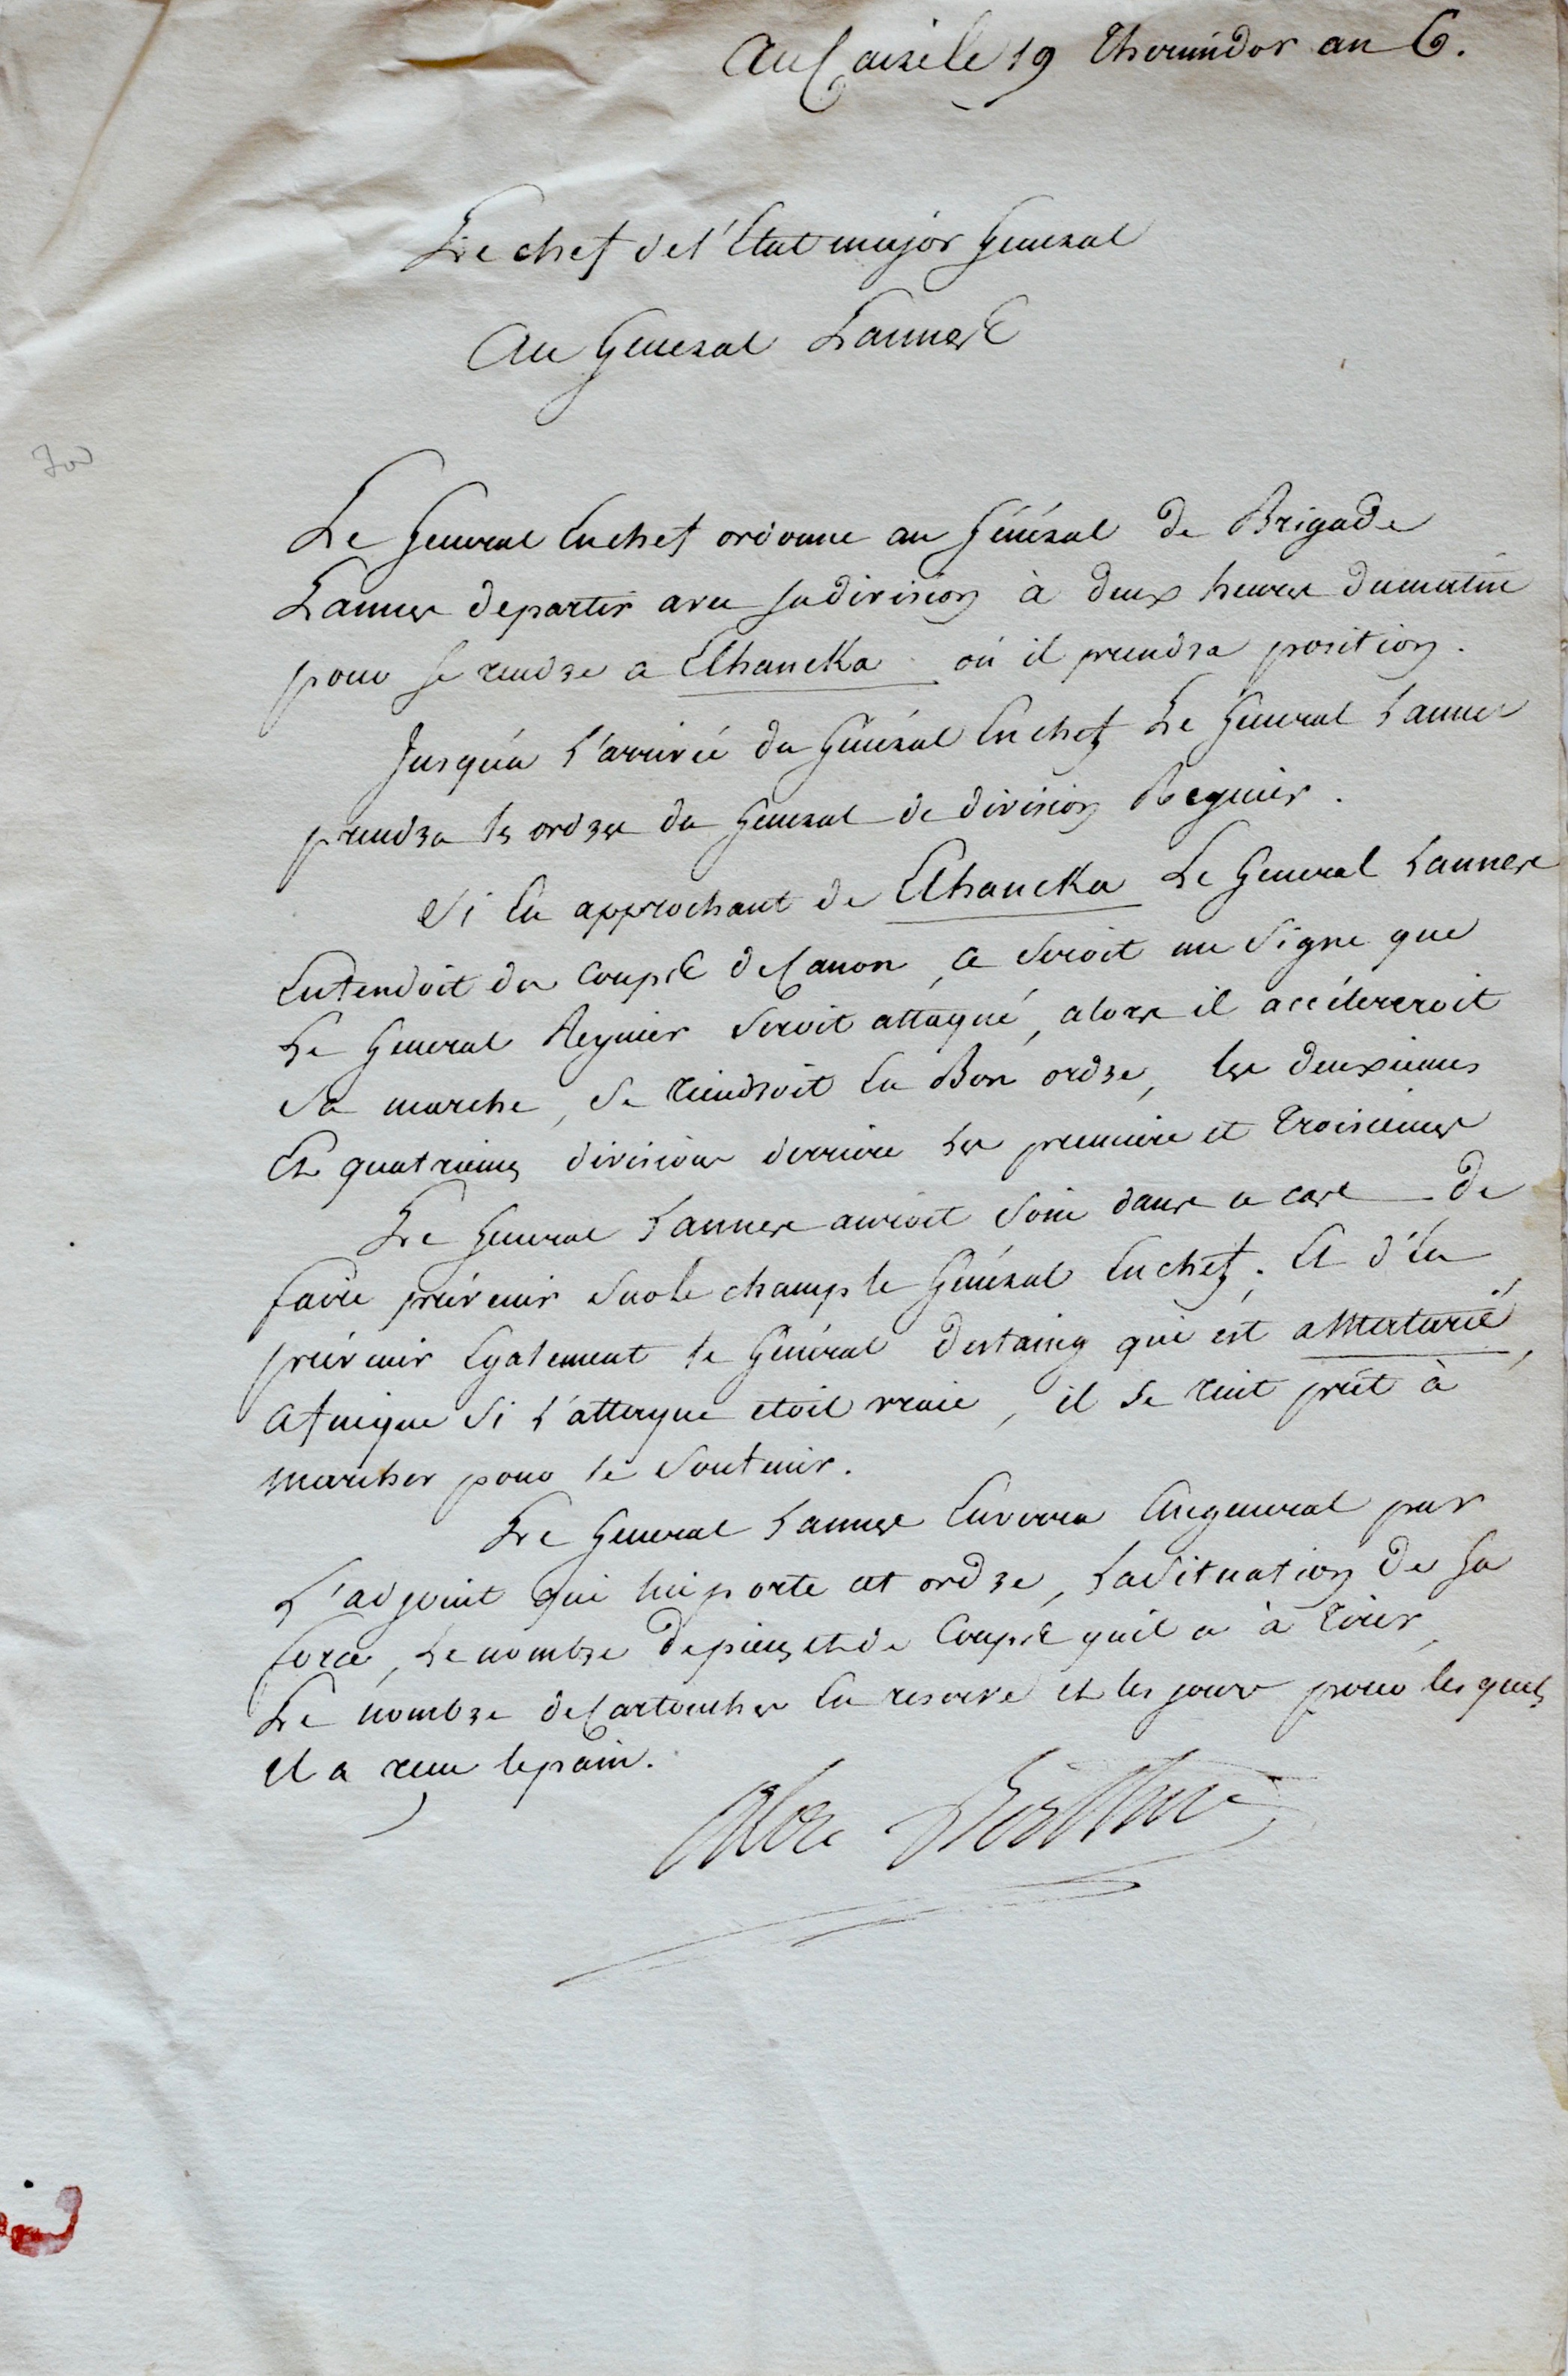 Au Caire le 19 Thermidor an 6.
Le chef de l'Etat major General
Au General Lannes
Le General En chef ordonne au Général de Brigade
Lannes de partir avec sa division à deux heures du matin
pour se rendre a Elhancka où il prendra position.
Jusqu'a l'arrivée du Général En chef Le General Lannes
prendra les ordres du General de division Regnier.
Si En approchant de Elhancka Le General Lannes
Entendoit des coups de Canon, ce seroit un signe que
Le General Reynier seroit attaqué, alors il accélereroit
sa marche, se tiendroit En Bon ordre, les deuxiemes
Et quatriemes divisions derriere les premiere et troisiemes
Le General Lannes auroit soin dans ce cas de
faire prévenir sur le champ le Général En chef. Et d'En
prévenir Egalement le Général Destaing qui est a Matarié,
afin que si l'attaque etoit vraie, il se tint prêt à
marcher pour le soutenir.
Le General Lannes Enverra au general par
L'adjoint qui lui porte cet ordre, la situation de sa
force, Le nombre de pieces et de Coups qu'il a à tirer,
Le nombre de Cartouches En reserve et les jours pour lesquels
il a reçu le pain.
Alex Berthier